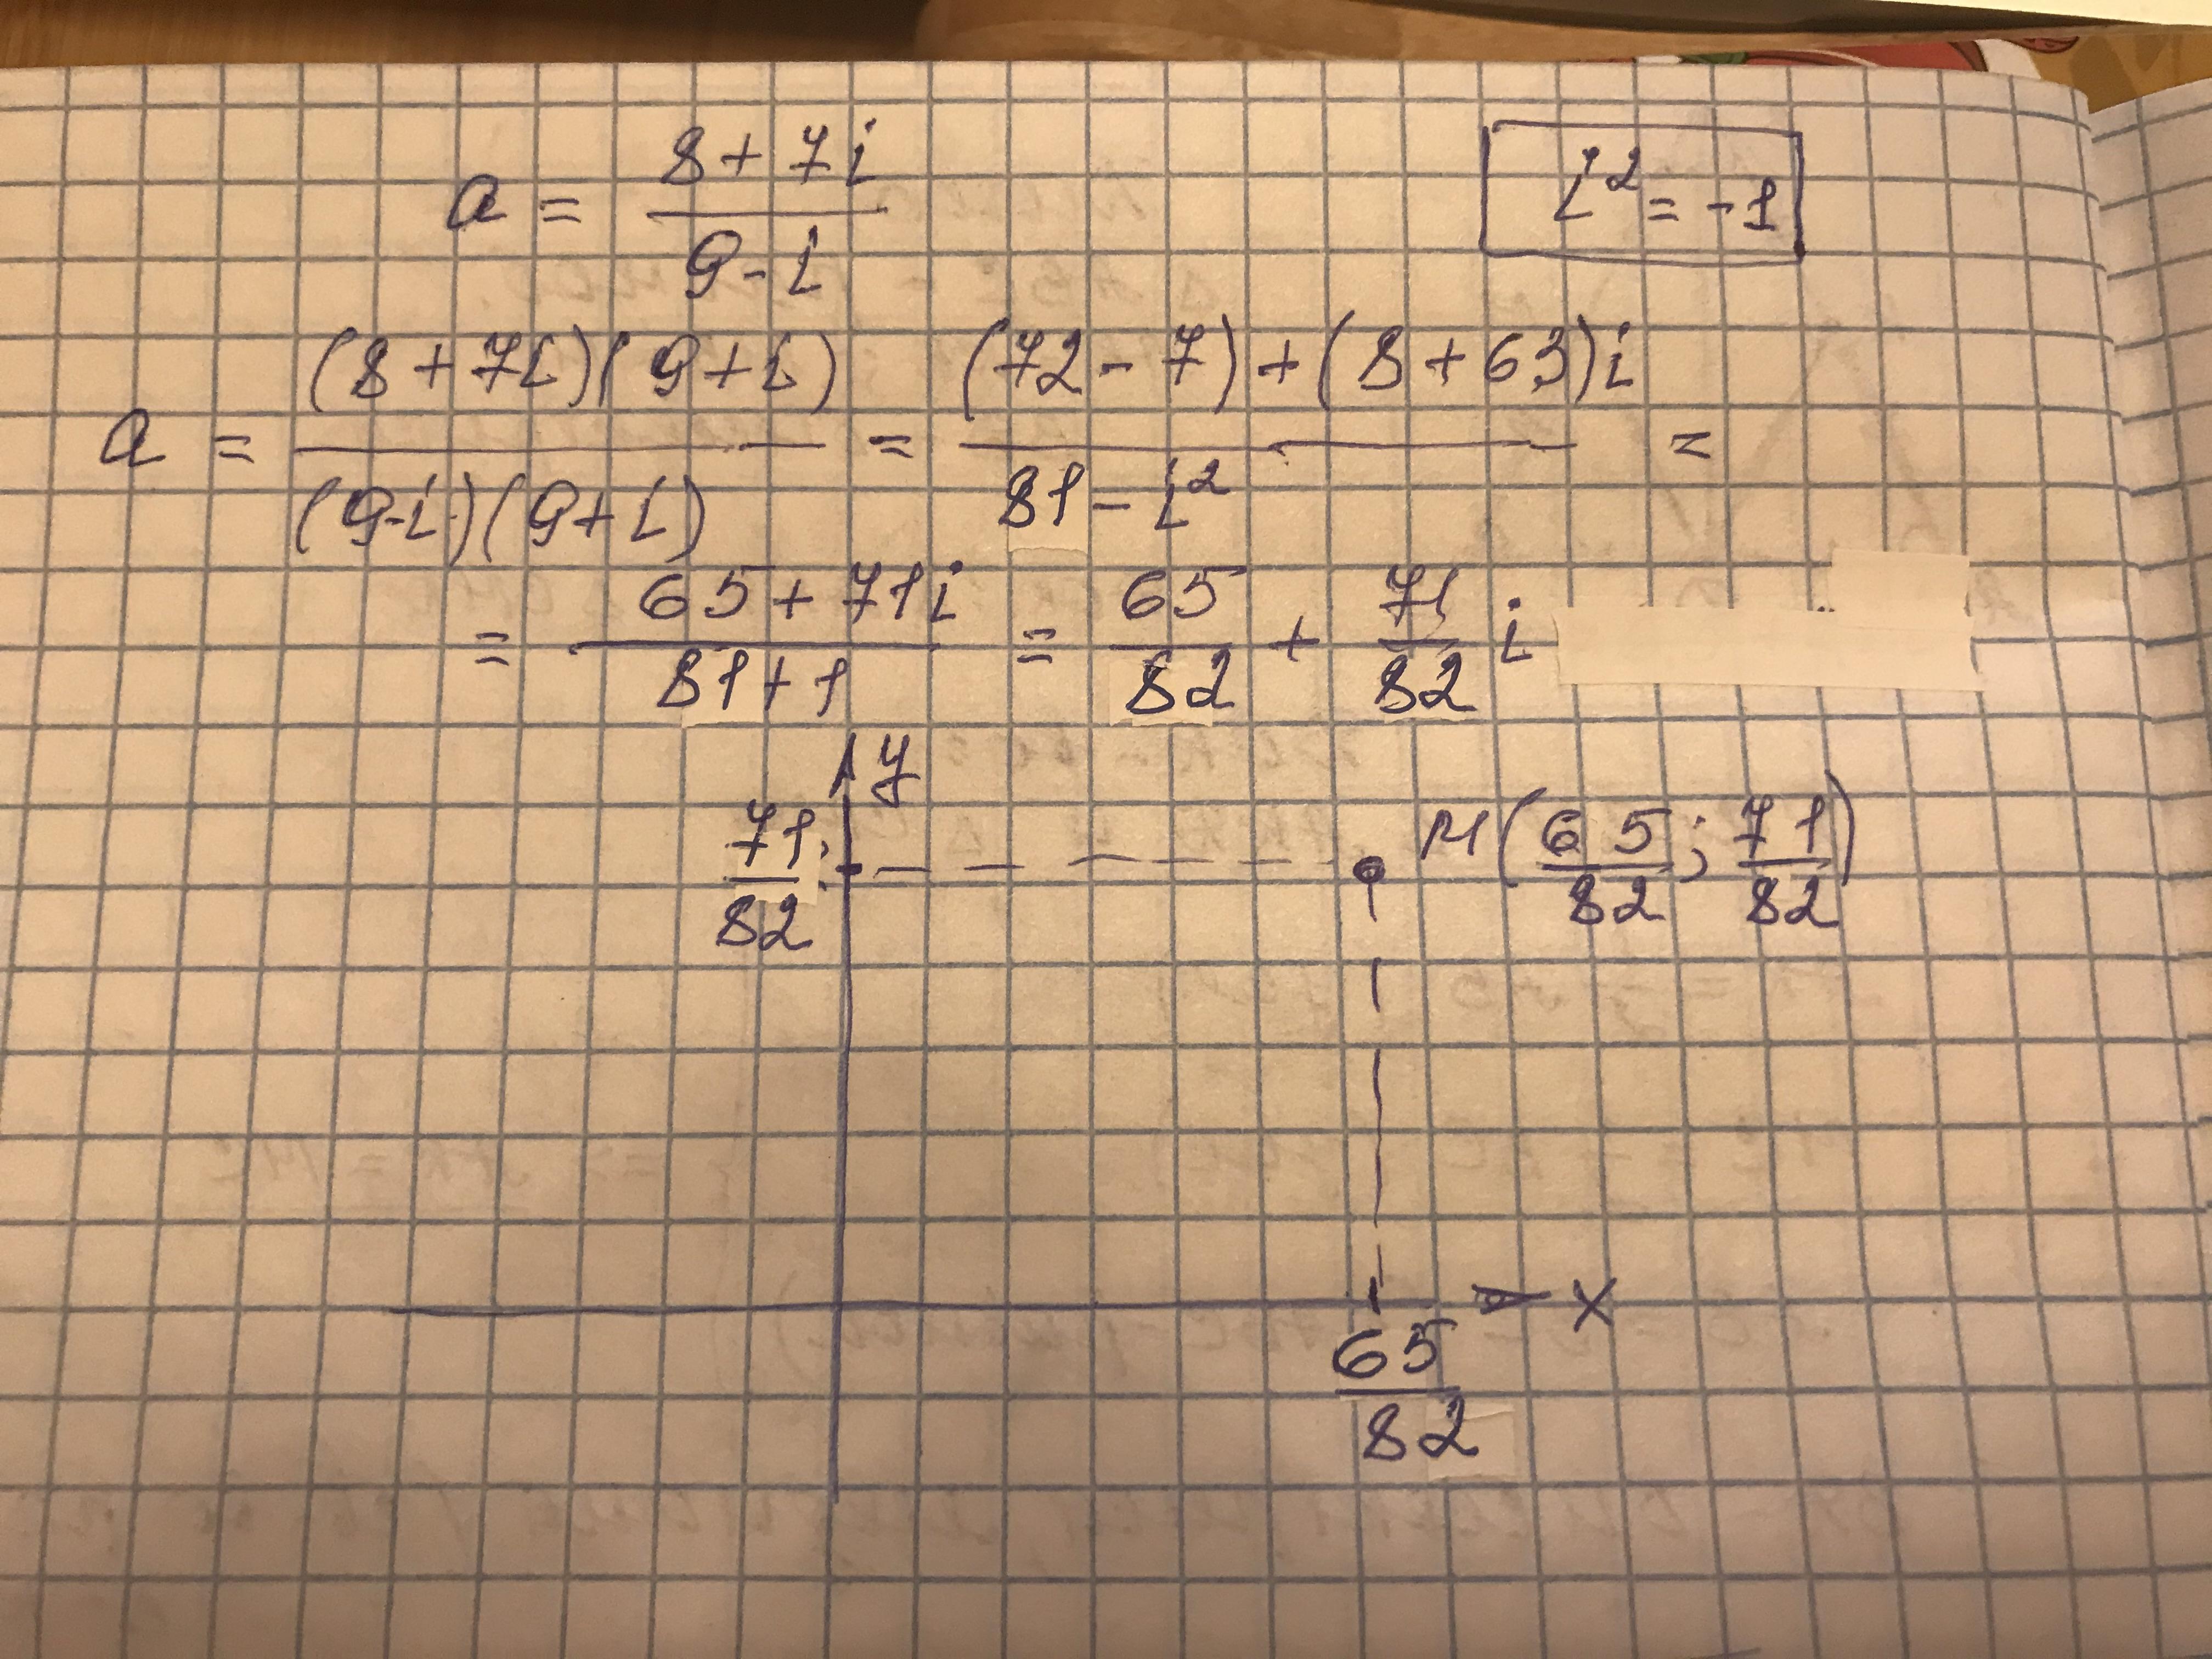 a = (8 + 7i) / (9 - i)
i² = -1
a = ((8 + 7i)(9 + i)) / ((9 - i)(9 + i)) = ((72 - 7) + (8 + 63)i) / (81 - i²) =
= (65 + 71i) / (81 + 1) = 65/82 + 71/82 i
y
71/82
M(65/82 ; 71/82)
x
65/82